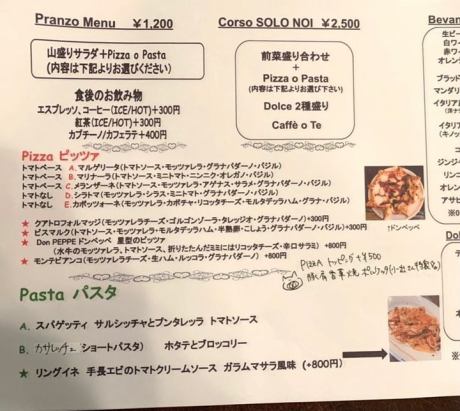 Pranzo Menu ¥1,200
山盛りサラダ＋Pizza o Pasta
(内容は下記よりお選びください)
食後のお飲み物
エスプレッソ、コーヒー(ICE/HOT)+300円
紅茶(ICE/HOT)+300円
カプチーノ/カフェラテ+400円
Corso SOLO NOI ¥2,500
前菜盛り合わせ
+
Pizza o Pasta
(内容は下記よりお選び下さい)
Dolce 2種盛り
Caffè o Te
Pizza ピッツァ
トマトベース A. マルゲリータ(トマトソース・モッツァレラ・グラナパダーノ・バジル)
トマトベース B. マリナーラ(トマトソース・トマト・ニンニク・オレガノ・バジル)
トマトベース C. メランザーネ(トマトソース・モッツァレラ・アゲナス・サラメ・グラナパダーノ・バジル)
トマトなし D. シラトマ(モッツァレラ・シラス・ミニトマト・グラナパダーノ・バジル)
トマトなし E. カポッツォーネ(モッツァレラ・カポチャ・リコッタチーズ・モルタデッラハム・グラナ・バジル)
★ クアトロフォルマッジ(モッツァレラチーズ・ゴルゴンゾーラ・タレッジオ・グラナパダーノ)+300円
★ ビスマルク(トマトソース・モッツァレラ・モルタデッラハム・半熟卵・こしょう・グラナパダーノ・バジル) +300円
★ Don PEPPE ドンペッペ 星型のピッツァ
(水牛のモッツァレラ、トマトソース、折りたたんだミミにはリコッタチーズ・辛口サラミ) +800円
★ モンテビアンコ(モッツァレラチーズ・生ハム・ルッコラ・グラナパダーノ) +800円
↑ドンペッペ
PIZZA トッピング +¥500
Pasta パスタ
A. スパゲッティ サルシッチャとプンタレッラ トマトソース
B. カサレッチェ(ショートパスタ) ホタテとブロッコリー
★ リングイネ 手長エビのトマトクリームソース ガラムマサラ風味 (+800円)
Bevan
生ビー
白ワイ
赤ワイ
オレン
マンダリ
イタリア
イタリア
(キノッ
コ
ジンジ
リンゴ
オレン
アサヒ
Dol